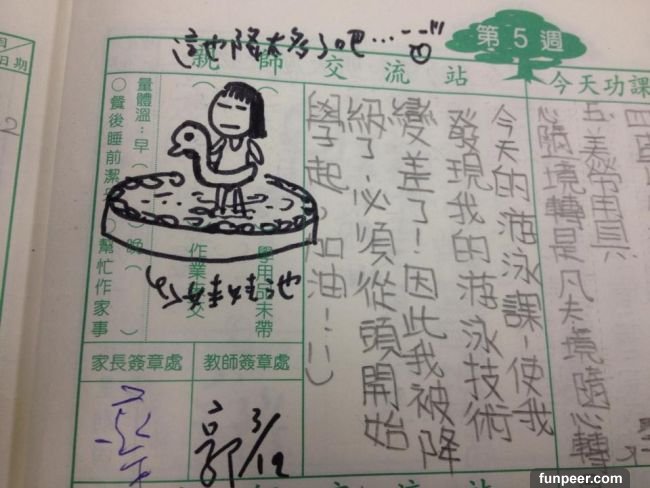 這也降太多了吧...
第5週
親師交流站
今天功課
五.美勞用具
心隨境轉是凡夫,境隨心轉
今天的游泳課,使我
發現我的游泳技術
變差了!因此我被降
級了,必須從頭開始
學起。加油!:)
學用品未帶
作業未交
量體溫:早( )晚( )
○餐後睡前潔 ○幫忙作家事
娃娃池
教師簽章處
家長簽章處
郭 3/12
日期
2
funpeer.com